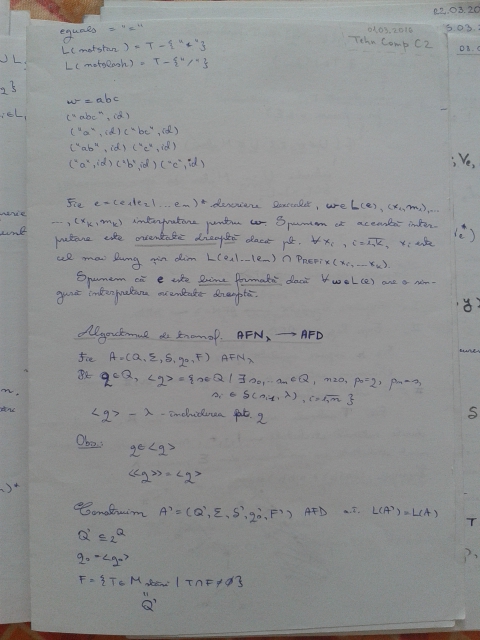 equals = "="
01.03.2013
Tehn Comp C2
L(notstar) = T - {"*"}
L(notslash) = T - {"/"}
w = abc
("abc", id)
("a", id) ("bc", id)
("ab", id) ("c", id)
("a", id) ("b", id) ("c", id)
Fie e = (e1|e2|...|en)* descriere lexicală, w∈L(e), (x1, m1), ...
..., (xk, mk) interpretare pentru w. Spunem că această inter-
pretare este orientată dreapta dacă pt. ∀ xi, i=1,k, xi este
cel mai lung șir din L(e1|...|en) ∩ PREFIX(xi...xk).
Spunem că e este bine formată dacă ∀ w∈L(e) are o sin-
gură interpretare orientată dreapta.
Algoritmul de transf. AFNλ → AFD
Fie A = (Q, Σ, δ, q0, F) AFNλ
Pt q∈Q, <q> = {s∈Q | ∃ s0,...sn∈Q, n≥0,
si ∈ δ(si-1, λ), i=1,n }
<q> - λ - închiderea lui q
Obs:
q∈<q>
<<q>> = <q>
Construim A' = (Q', Σ, δ', q0', F') AFD a.î. L(A') = L(A)
Q' ⊆ 2^Q
q0 = <q0>
F = {T∈M | T∩F≠∅}
"
Q'